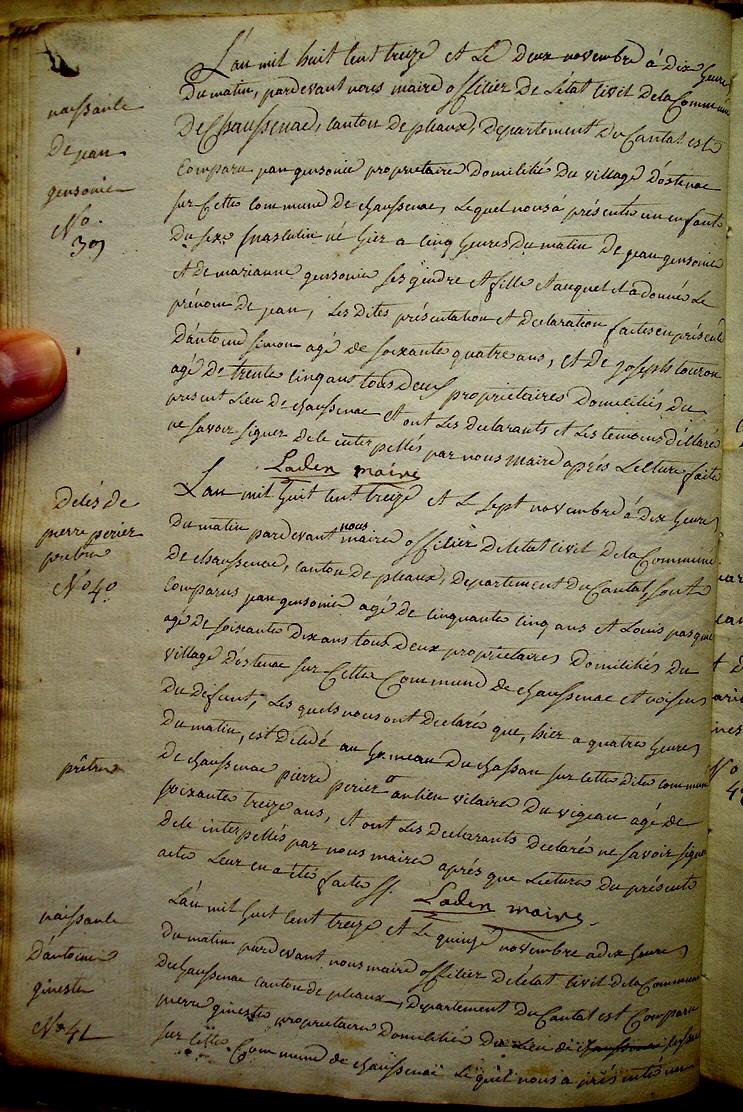 naissance
de jean
gensonie
No.
39
L'an mil huit cent treize et le deux novembre à dix heures
du matin, pardevant nous maire officier de l'état civil de la Commune
de Chaussenac, canton de pleaux, departement du Cantal est
comparu jean gensonie proprietaire domicilié du village d'ostenac
sur cette commune de chaussenac, lequel nous a présenté un enfant
du sexe masculin né hier a cinq heures du matin de jean gensonie
et de marianne gensonie ses gendre et fille et auquel il a donné le
prénom de jean, les dites présentation et declaration faites en présence
d'antoine simon agé de soixante quatre ans, et de joseph touron
agé de trente cinq ans tous deux proprietaires domiciliés du
present lieu de chaussenac et ont les declarants et les temoins déclaré
ne savoir signer de ce interpellés par nous maire après lecture faite
Laden maire
Décés de
pierre perier
prêtre
No 40
L'an mil huit cent treize et le sept novembre à dix heures
du matin pardevant nous maire officier de l'état civil de la Commune
de chaussenac, canton de pleaux, departement du Cantal sont
comparus jean gensonie agé de cinquante cinq ans et Louis pasque
agé de soixante dix ans tous deux proprietaires domiciliés du
village d'ostenac sur cette Commune de chaussenac et voisins
du défunt, les quels nous ont declaré que, hier a quatre heures
du matin, est décédé au hameau du chassan sur cette dite commune
de chaussenac pierre perier ancien vicaire du vigean agé de
prêtre
soixante treize ans, et ont les declarants declaré ne savoir signer
de ce interpellés par nous maire après que lecture du présent
acte leur en a été faite ff.
Laden maire
naissance
d'antoine
gineste
No 41
L'an mil huit cent treize et le quinze novembre a dix heures
du matin pardevant nous maire officier de l'état civil de la Commune
de chaussenac canton de pleaux, departement du Cantal est comparu
pierre gineste proprietaire domicilié du lieu de chaussenac
sur cette Commune de chaussenac lequel nous a présenté un